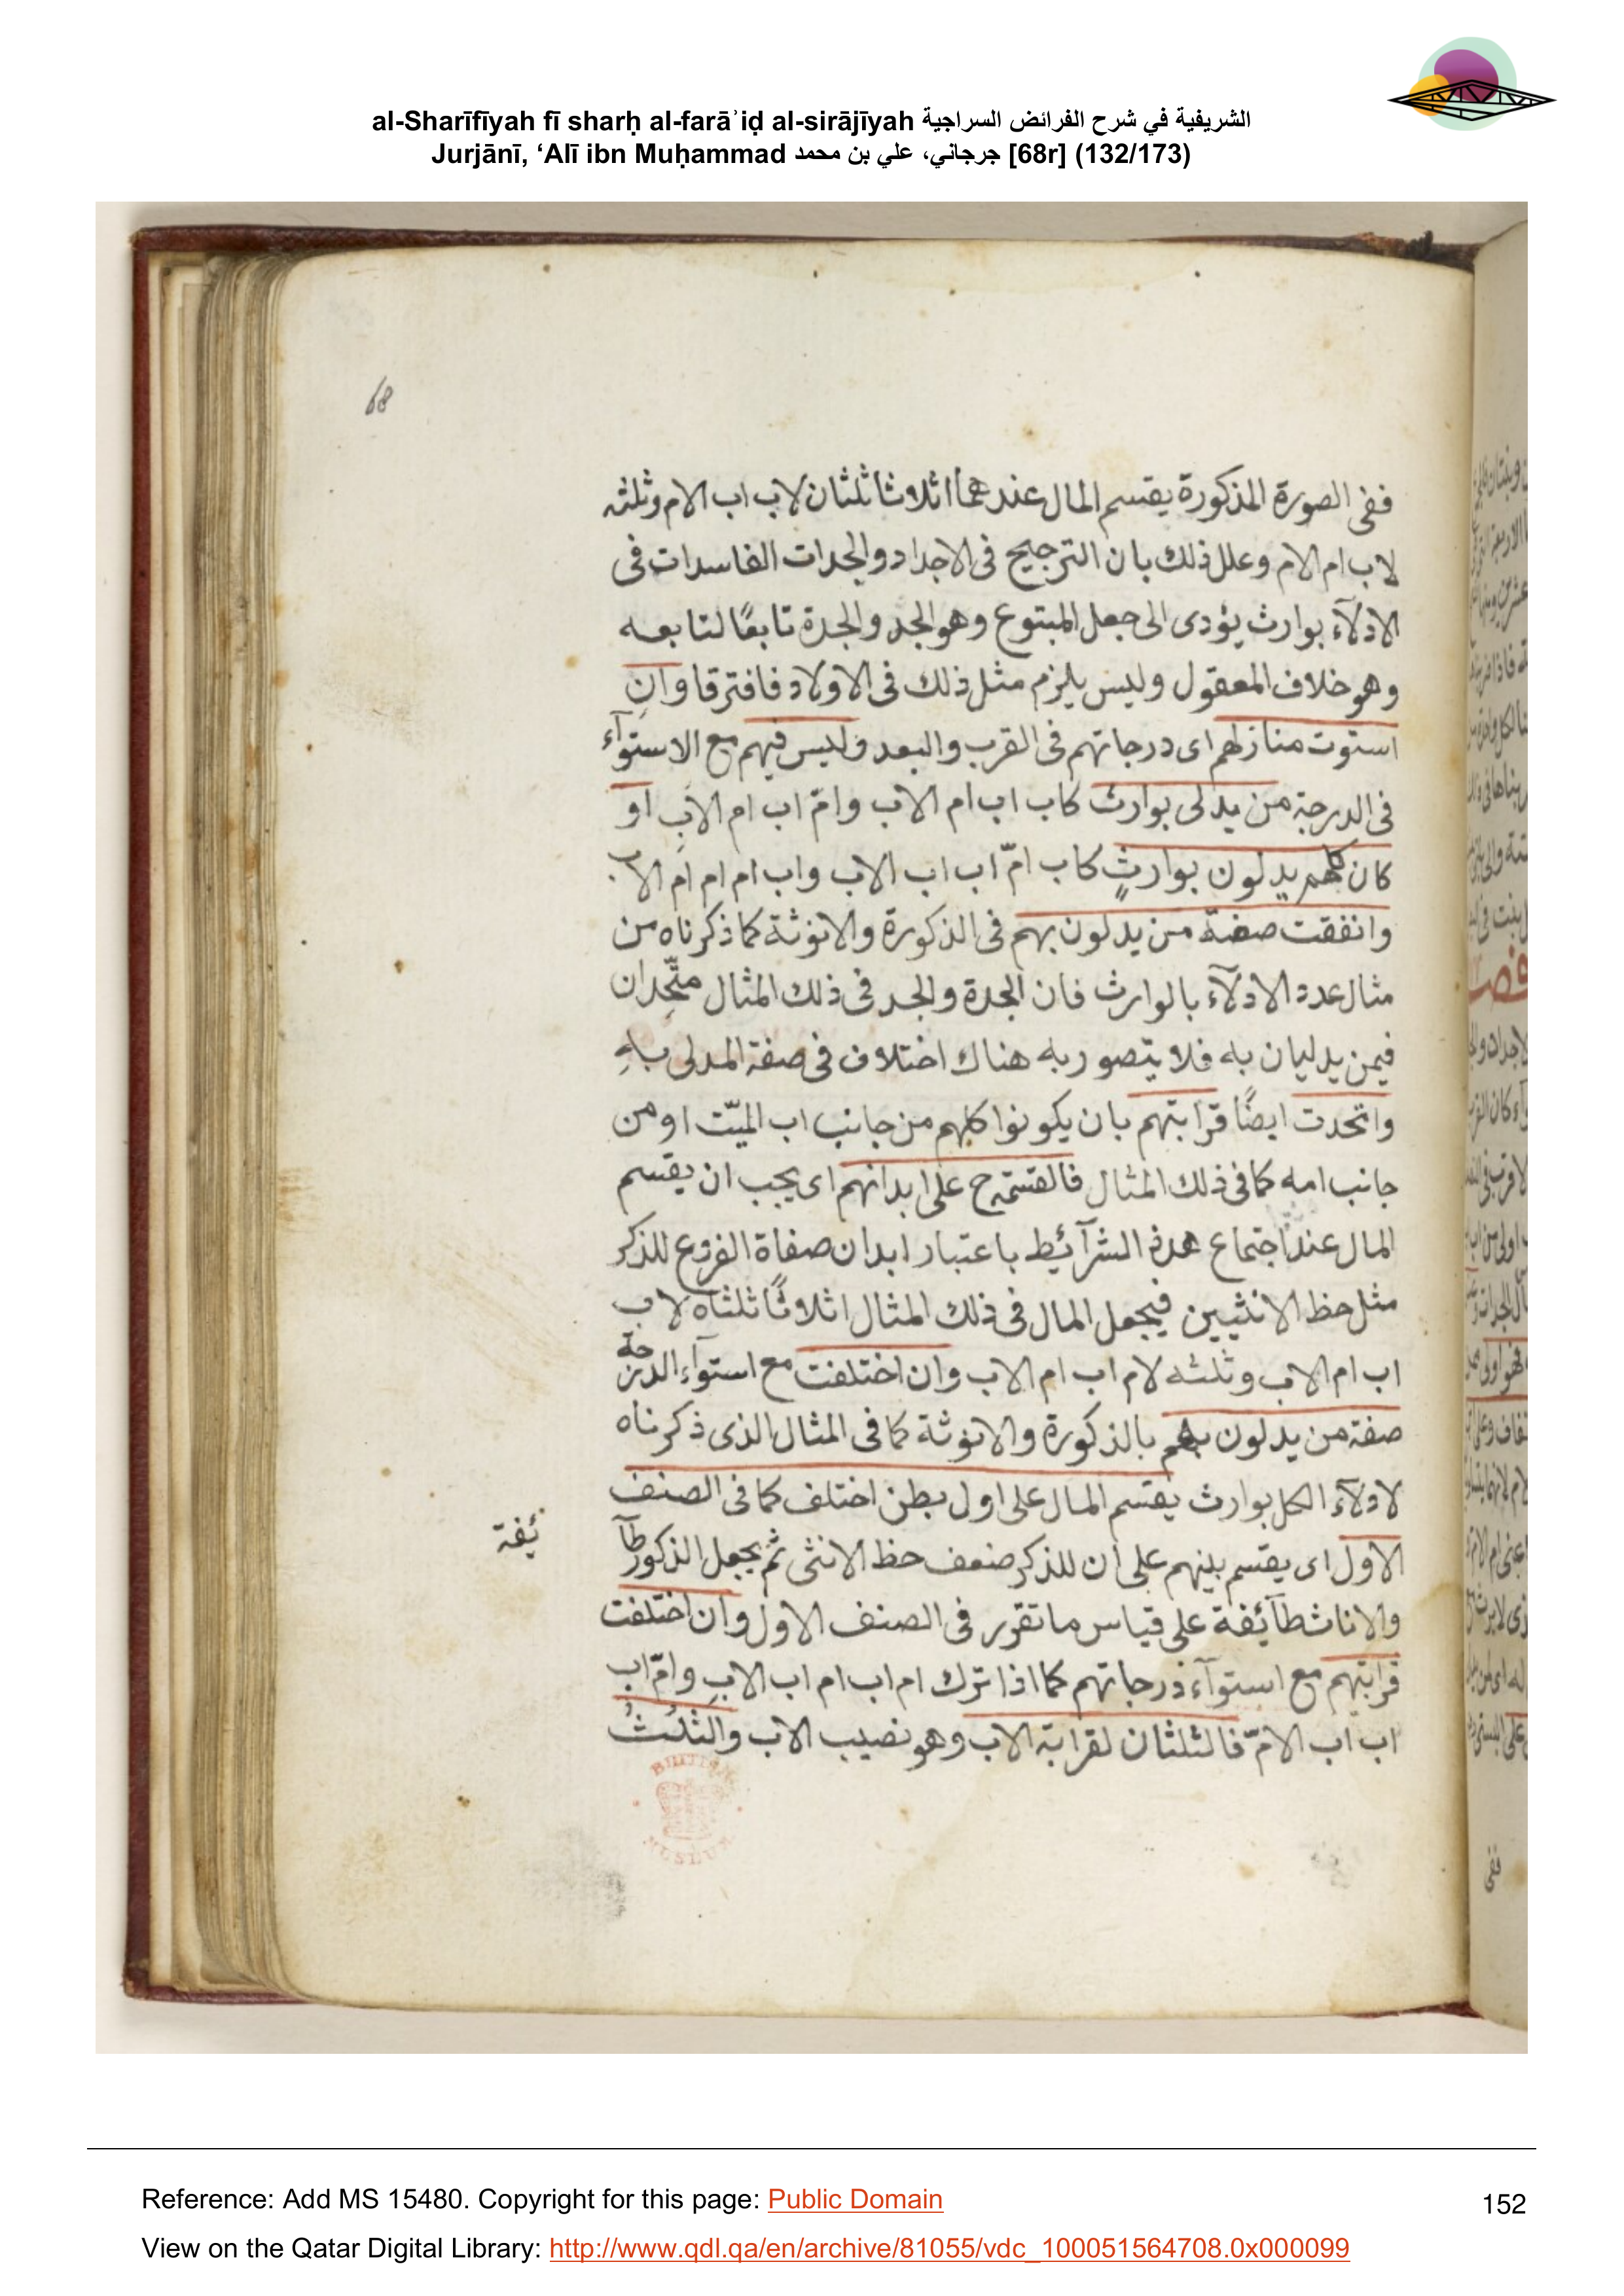 al-Sharīfīyah fī sharḥ al-farāʾiḍ al-sirājīyah الشريفية في شرح الفرائض السراجية
Jurjānī, ‘Alī ibn Muḥammad جرجاني، علي بن محمد [68r] (132/173)
68
ففى الصورة المذكورة يقسم المال عندهما اثلاثا ثلثان لاب اب الام وثلثه
لاب ام الام وعلل ذلك بان الترجيح فى الاجداد والجدات الفاسدات فى
الادلآء بوارث يؤدى الى جعل المبتوع وهو الجد والجدة تابعًا لتابعه
وهو خلاف المعقول وليس يلزم مثل ذلك فى الاولاد فافترقا وان
استوت منازلهم اى درجاتهم فى القرب والبعد وليس فيهم مع الاستوآء
فى الدرجة من يدلى بوارث كاب اب ام الاب وامّ اب ام الاب او
كان كلهم يدلون بوارثٍ كاب امّ اب اب الاب واب ام ام ام الاب
واتفقت صفة من يدلون بهم فى الذكورة والانوثة كما ذكرناه من
مثال عدد الادلآء بالوارث فان الجدة والجد فى ذلك المثال متّحدان
فيمن يدليان به فلا يتصور به هناك اختلاف فى صفة المدلى به
واتحدت ايضًا قرابتهم بان يكونوا كلهم من جانب اب الميّت او من
جانب امه كما فى ذلك المثال فالقسمة ح على ابدانهم اى يجب ان يقسم
المال عند اجتماع هذه الشرآئيط باعتبار ابدان صفاة الفروع للذكر
مثل حظ الانثيين فيجعل المال فى ذلك المثال اثلاثًا ثلثاه لاب
اب ام الاب وثلثه لام اب ام الاب وان اختلفت مع استوآء الدرجة
صفة من يدلون بهم بالذكورة والانوثة كما فى المثال الذى ذكرناه
لادلآء الكل بوارث يقسم المال على اول بطن اختلف كما فى الصنف
الاول اى يقسم بينهم على ان للذكر ضعف حظ الانثى ثم يجعل الذكور طآ
ئفة
والاناث طآئفة على قياس ما تقرر فى الصنف الاول وان اختلفت
قرابتهم مع استوآء درجاتهم كما اذا ترك ام اب ام اب الاب وامّ اب
اب اب الامّ فالثلثان لقرابة الاب وهو نصيب الاب والثلث
BRITISH MUSEUM
ففى
Reference: Add MS 15480. Copyright for this page: Public Domain
152
View on the Qatar Digital Library: http://www.qdl.qa/en/archive/81055/vdc_100051564708.0x000099